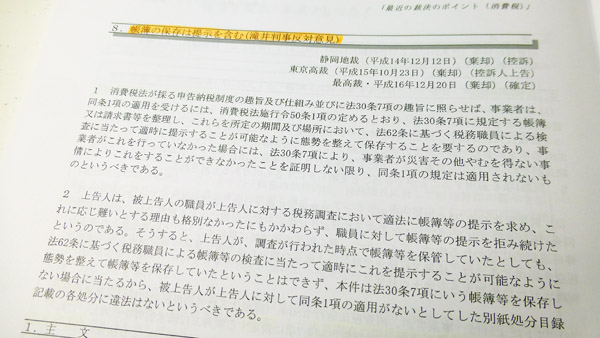 （最近の裁決のポイント〔消費税〕）
8．帳簿の保存は提示を含む(滝井判事反対意見)
静岡地裁（平成14年12月12日）（棄却）（控訴）
東京高裁（平成15年10月23日）（棄却）（控訴人上告）
最高裁・平成16年12月20日（棄却）（確定）
1　消費税法が採る申告納税制度の趣旨及び仕組み並びに法30条7項の趣旨に照らせば、事業者は、
同条1項の適用を受けるには、消費税法施行令50条1項の定めるとおり、法30条7項に規定する帳簿
又は請求書等を整理し、これらを所定の期間及び場所において、法62条に基づく税務職員による検
査に当たって適時に提示することが可能なように態勢を整えて保存することを要するのであり、事
業者がこれを行っていなかった場合には、法30条7項により、事業者が災害その他やむを得ない事
情によりこれをすることができなかったことを証明しない限り、同条1項の規定は適用されないも
のというべきである。
2　上告人は、被上告人の職員が上告人に対する税務調査において適法に帳簿等の提示を求め、こ
れに応じ難いとする理由も格別なかったにもかかわらず、職員に対して帳簿等の提示を拒み続けた
というのである。そうすると、上告人が、調査が行われた時点で帳簿等を保管していたとしても、
法62条に基づく税務職員による帳簿等の検査に当たって適時にこれを提示することが可能なように
態勢を整えて帳簿等を保存していたということはできず、本件は法30条7項にいう帳簿等を保存し
ない場合に当たるから、被上告人が上告人に対して同条1項の適用がないとしてした別紙処分目録
記載の各処分に違法はないというべきである。
1．主　文